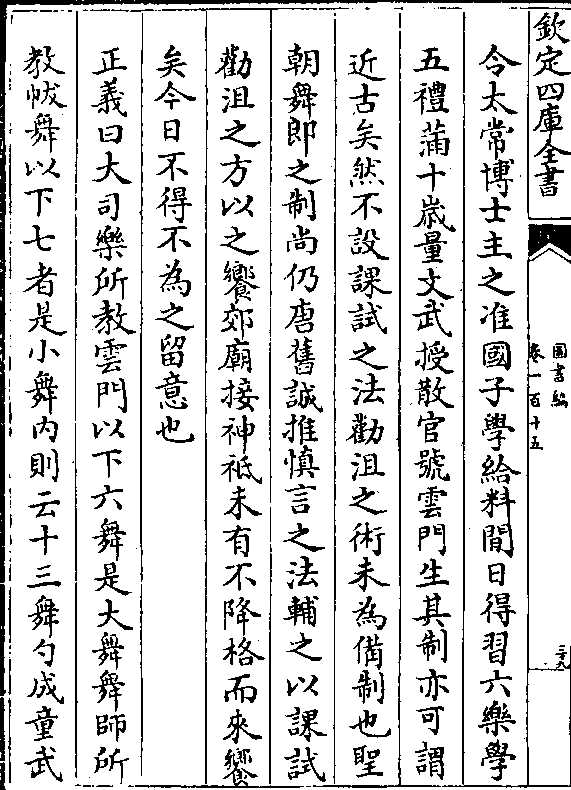 欽定四庫全書
圖書編
卷一百十五
二十九
令太常博士主之准國子學給料間日得習六樂學
五禮蒲十歲量文武授散官號雲門生其制亦可謂
近古矣然不設課試之法勸沮之術未為備制也聖
朝舞郎之制尚仍唐舊誠推慎言之法輔之以課試
勸沮之方以之饗郊廟接神祇未有不降格而來饗
矣今日不得不為之留意也
正義曰大司樂所教雲門以下六舞是大舞舞師所
教帗舞以下七者是小舞内則云十三舞勺成童武